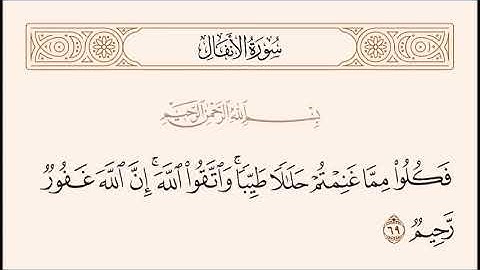 سُورَةُ الأَنفَالِ
بِسْمِ اللَّهِ الرَّحْمَٰنِ الرَّحِيمِ
فَكُلُوا۟ مِمَّا غَنِمْتُمْ حَلَٰلًا طَيِّبًا ۚ وَٱتَّقُوا۟ ٱللَّهَ ۚ إِنَّ ٱللَّهَ غَفُورٌ
رَّحِيمٌ ٦٩